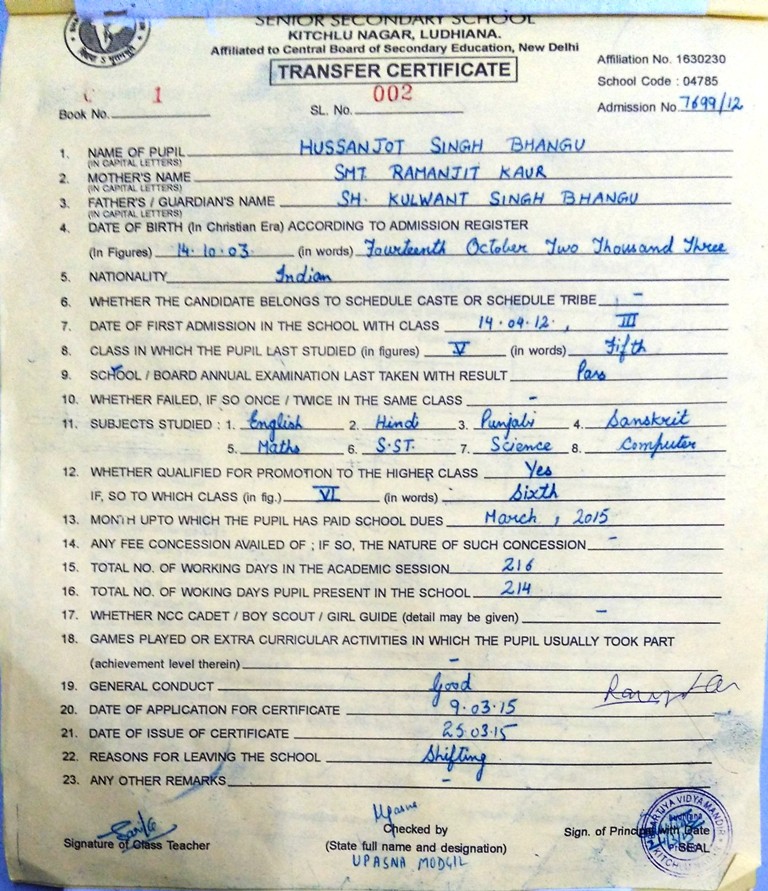 SENIOR SECONDARY SCHOOL
KITCHLU NAGAR, LUDHIANA.
Affiliated to Central Board of Secondary Education, New Delhi
Affiliation No. 1630230
TRANSFER CERTIFICATE
School Code : 04785
Admission No 7699/12
Book No. C 1
SL. No. 002
1. NAME OF PUPIL HUSSANJOT SINGH BHANGU
(IN CAPITAL LETTERS)
2. MOTHER'S NAME SMT. RAMANJIT KAUR
(IN CAPITAL LETTERS)
3. FATHER'S / GUARDIAN'S NAME SH. KULWANT SINGH BHANGU
(IN CAPITAL LETTERS)
4. DATE OF BIRTH (In Christian Era) ACCORDING TO ADMISSION REGISTER
(In Figures) 14.10.03. (in words) Fourteenth October Two Thousand Three
5. NATIONALITY Indian
6. WHETHER THE CANDIDATE BELONGS TO SCHEDULE CASTE OR SCHEDULE TRIBE -
7. DATE OF FIRST ADMISSION IN THE SCHOOL WITH CLASS 14.04.12., III
8. CLASS IN WHICH THE PUPIL LAST STUDIED (in figures) V (in words) Fifth
9. SCHOOL / BOARD ANNUAL EXAMINATION LAST TAKEN WITH RESULT Pass
10. WHETHER FAILED, IF SO ONCE / TWICE IN THE SAME CLASS -
11. SUBJECTS STUDIED : 1. English 2. Hindi 3. Punjabi 4. Sanskrit
5. Maths 6. S.ST. 7. Science 8. Computer
12. WHETHER QUALIFIED FOR PROMOTION TO THE HIGHER CLASS Yes
IF, SO TO WHICH CLASS (in fig.) VI (in words) Sixth
13. MONTH UPTO WHICH THE PUPIL HAS PAID SCHOOL DUES March, 2015
14. ANY FEE CONCESSION AVAILED OF ; IF SO, THE NATURE OF SUCH CONCESSION -
15. TOTAL NO. OF WORKING DAYS IN THE ACADEMIC SESSION 216
16. TOTAL NO. OF WOKING DAYS PUPIL PRESENT IN THE SCHOOL 214
17. WHETHER NCC CADET / BOY SCOUT / GIRL GUIDE (detail may be given) -
18. GAMES PLAYED OR EXTRA CURRICULAR ACTIVITIES IN WHICH THE PUPIL USUALLY TOOK PART
(achievement level therein) -
19. GENERAL CONDUCT Good
20. DATE OF APPLICATION FOR CERTIFICATE 9.03.15
21. DATE OF ISSUE OF CERTIFICATE 25.03.15
22. REASONS FOR LEAVING THE SCHOOL Shifting
23. ANY OTHER REMARKS -
Sarita
Upasna
Signature of Class Teacher
Checked by
Sign. of Principal with Date
(State full name and designation)
SEAL
UPASNA MODGIL
VIDYA MANDIR